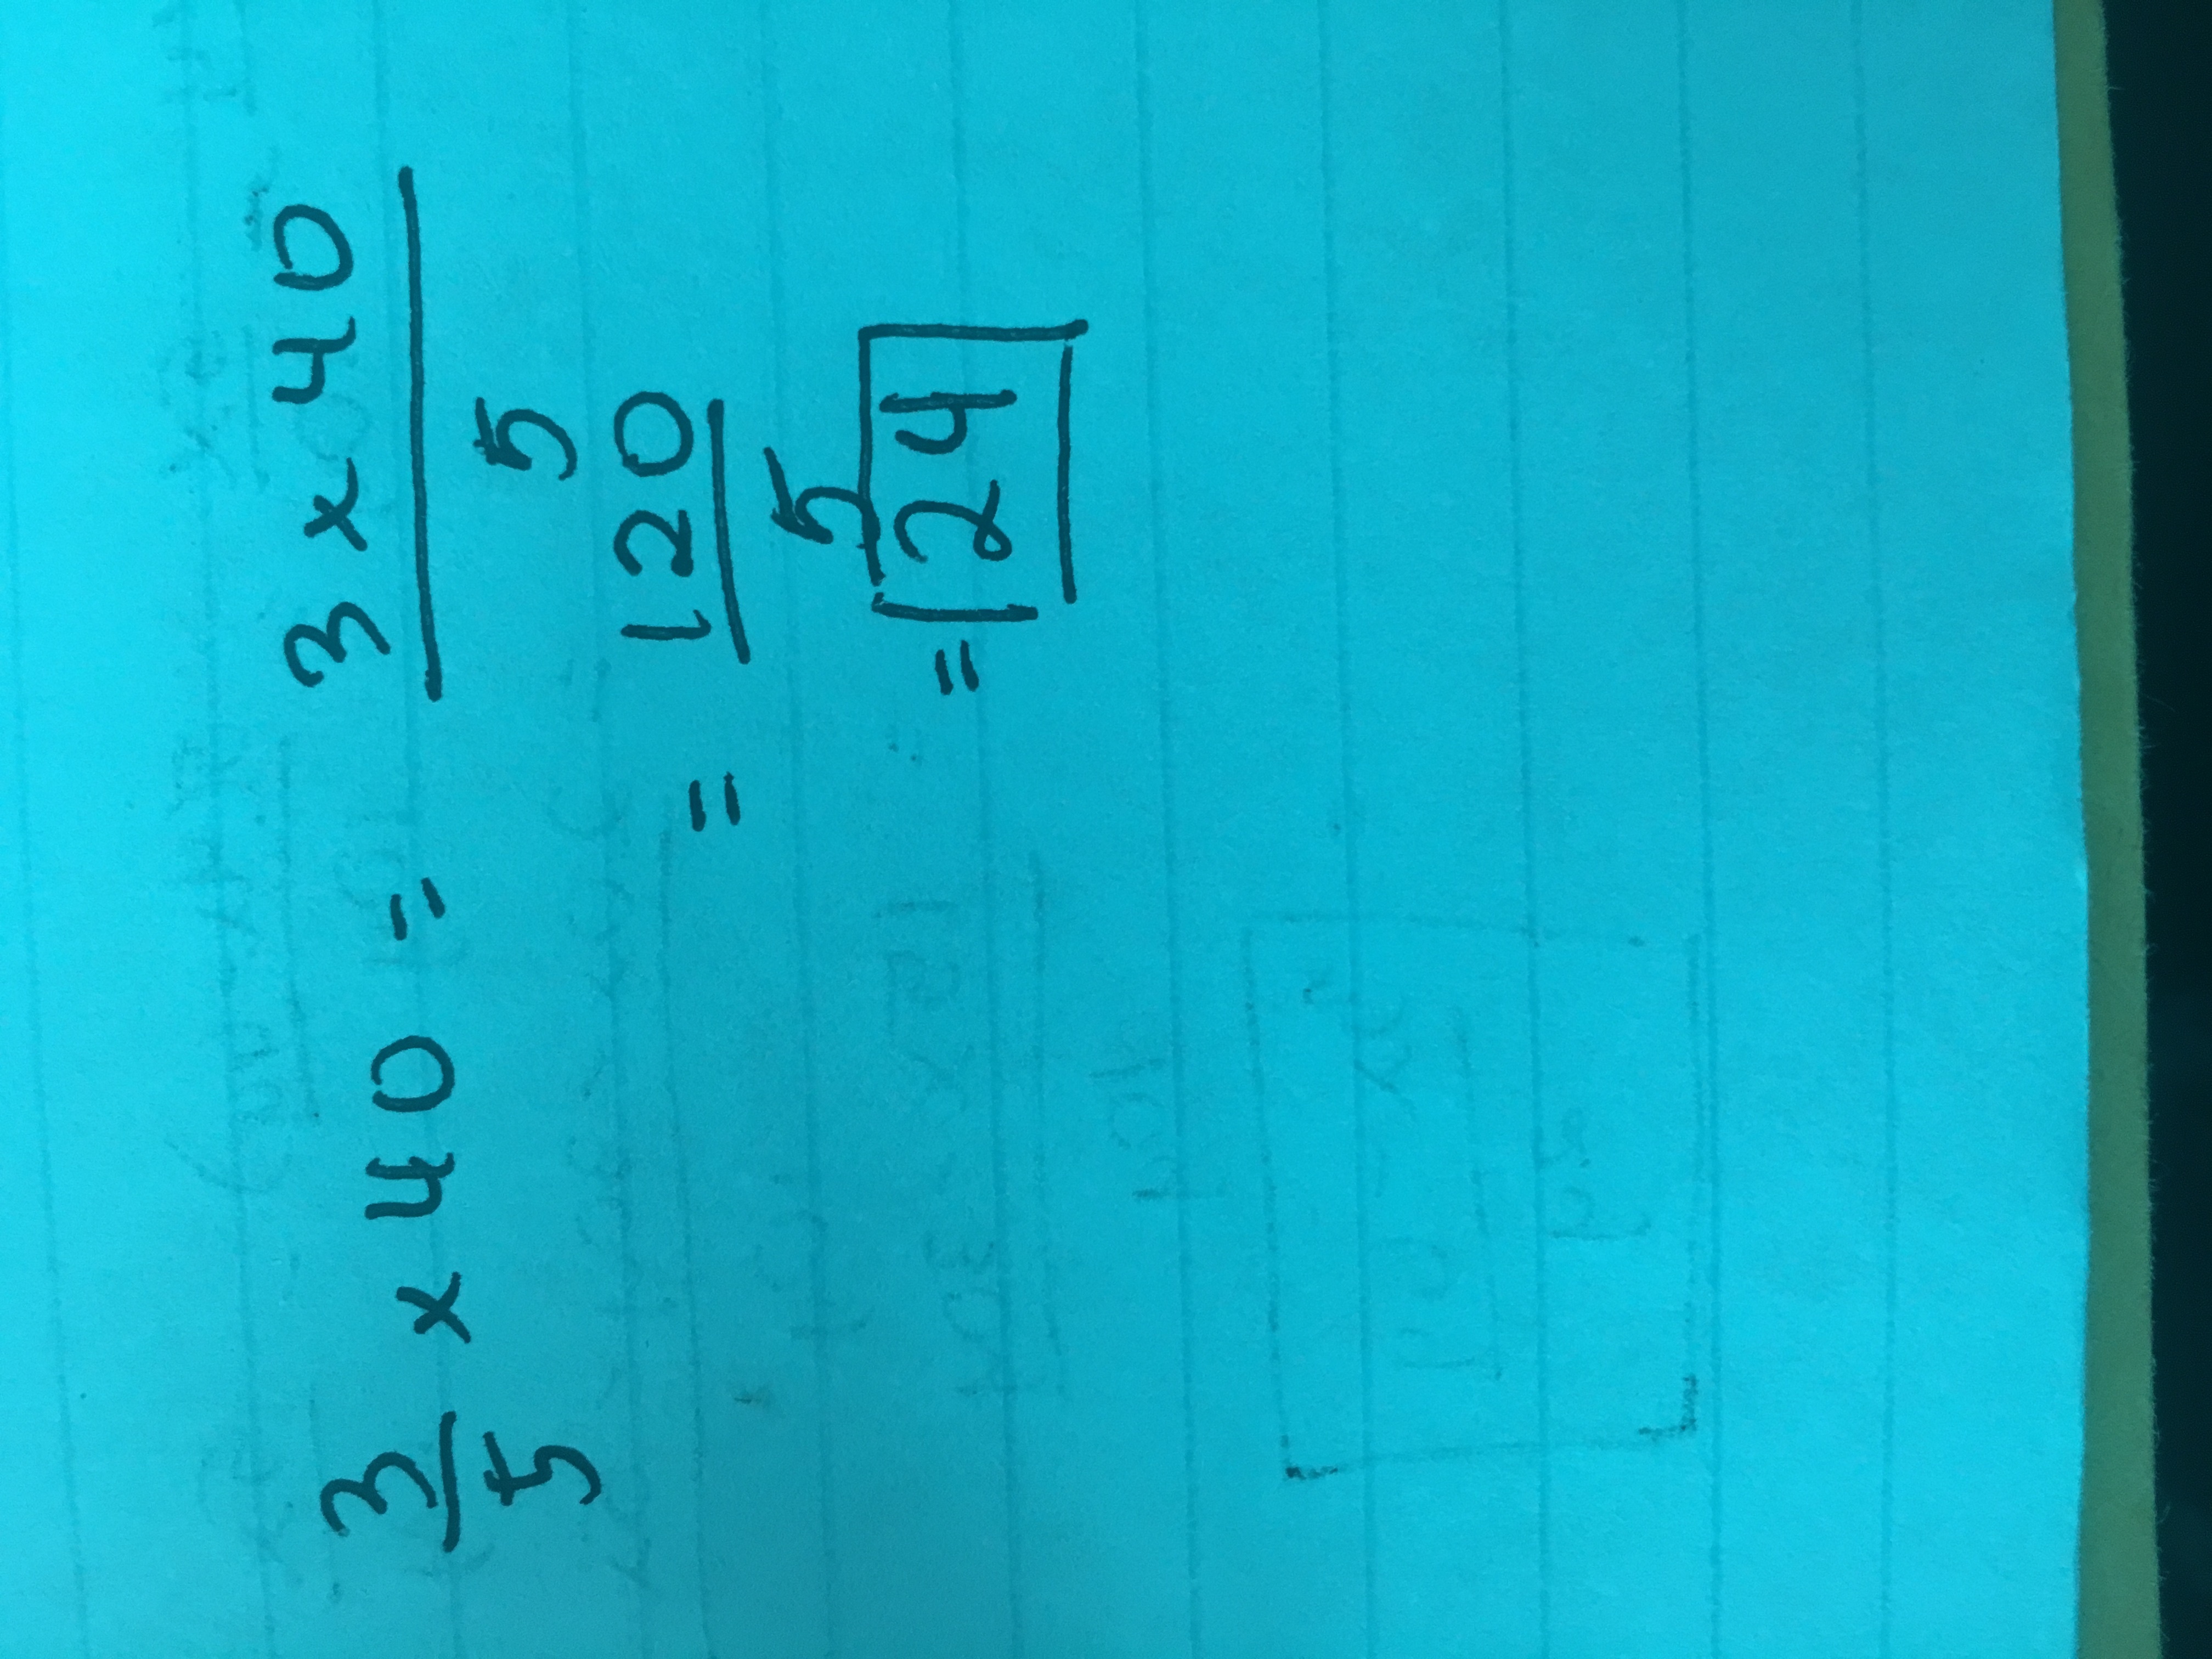 3/5 x 40 = 3 x 40 / 5
= 120 / 5
= 24